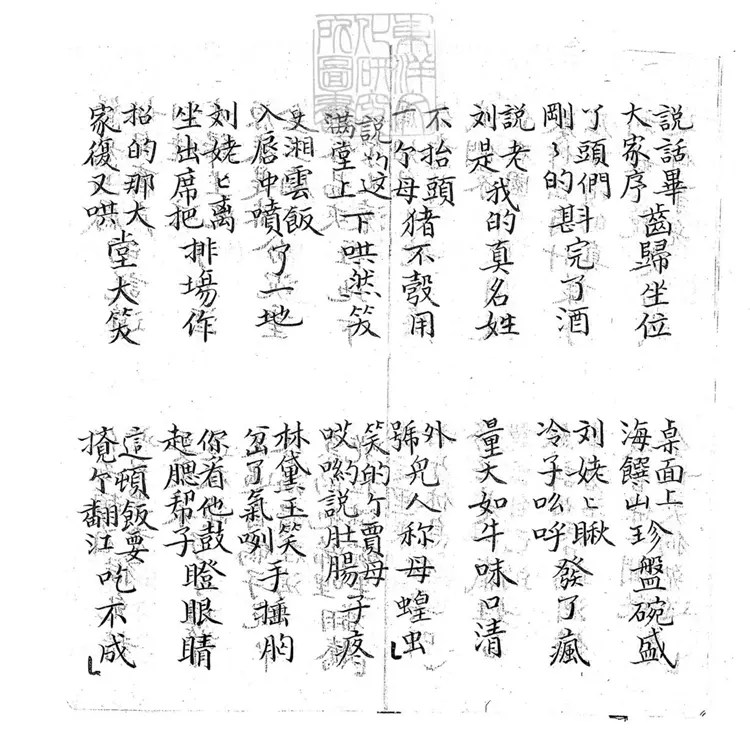 東洋文化研究所圖書
說話畢大家序齒歸坐位
桌面上海饌山珍盤碗盛
丫頭們剛〻的斟完了酒
刘姥〻瞅冷子吆呼發了瘋
説老刘是我的真名姓
量大如牛味口清
不抬頭一个母猪不彀用
外號兒人称母蝗虫
説的这滿堂上下哄然笑
笑的个賈母哎喲説肚腸子疼
史湘雲飯入唇中噴了一地
林黛玉笑岔了氣咧手捶胸
刘姥〻離坐出席把排場作
你看他鼓起腮帮子瞪眼睛
招的那大家復又哄堂大笑
這頓飯要攪个翻江吃不成